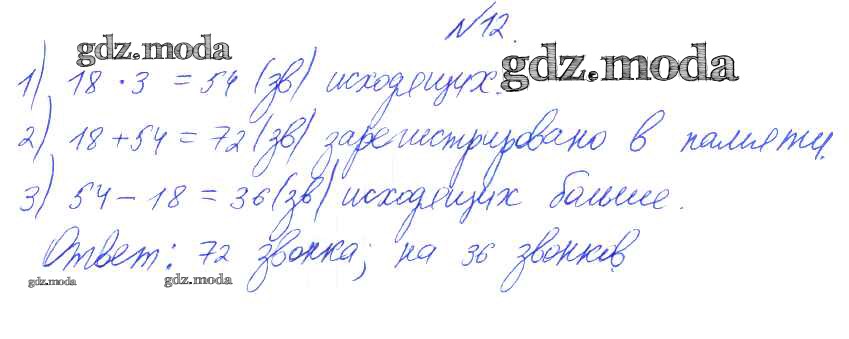 №12.
gdz.moda
gdz.moda
1) 18 · 3 = 54 (зв) исходящих.
2) 18 + 54 = 72 (зв) зарегистрировано в памяти.
3) 54 – 18 = 36 (зв) исходящих больше.
Ответ: 72 звонка; на 36 звонков
gdz.moda
gdz.moda